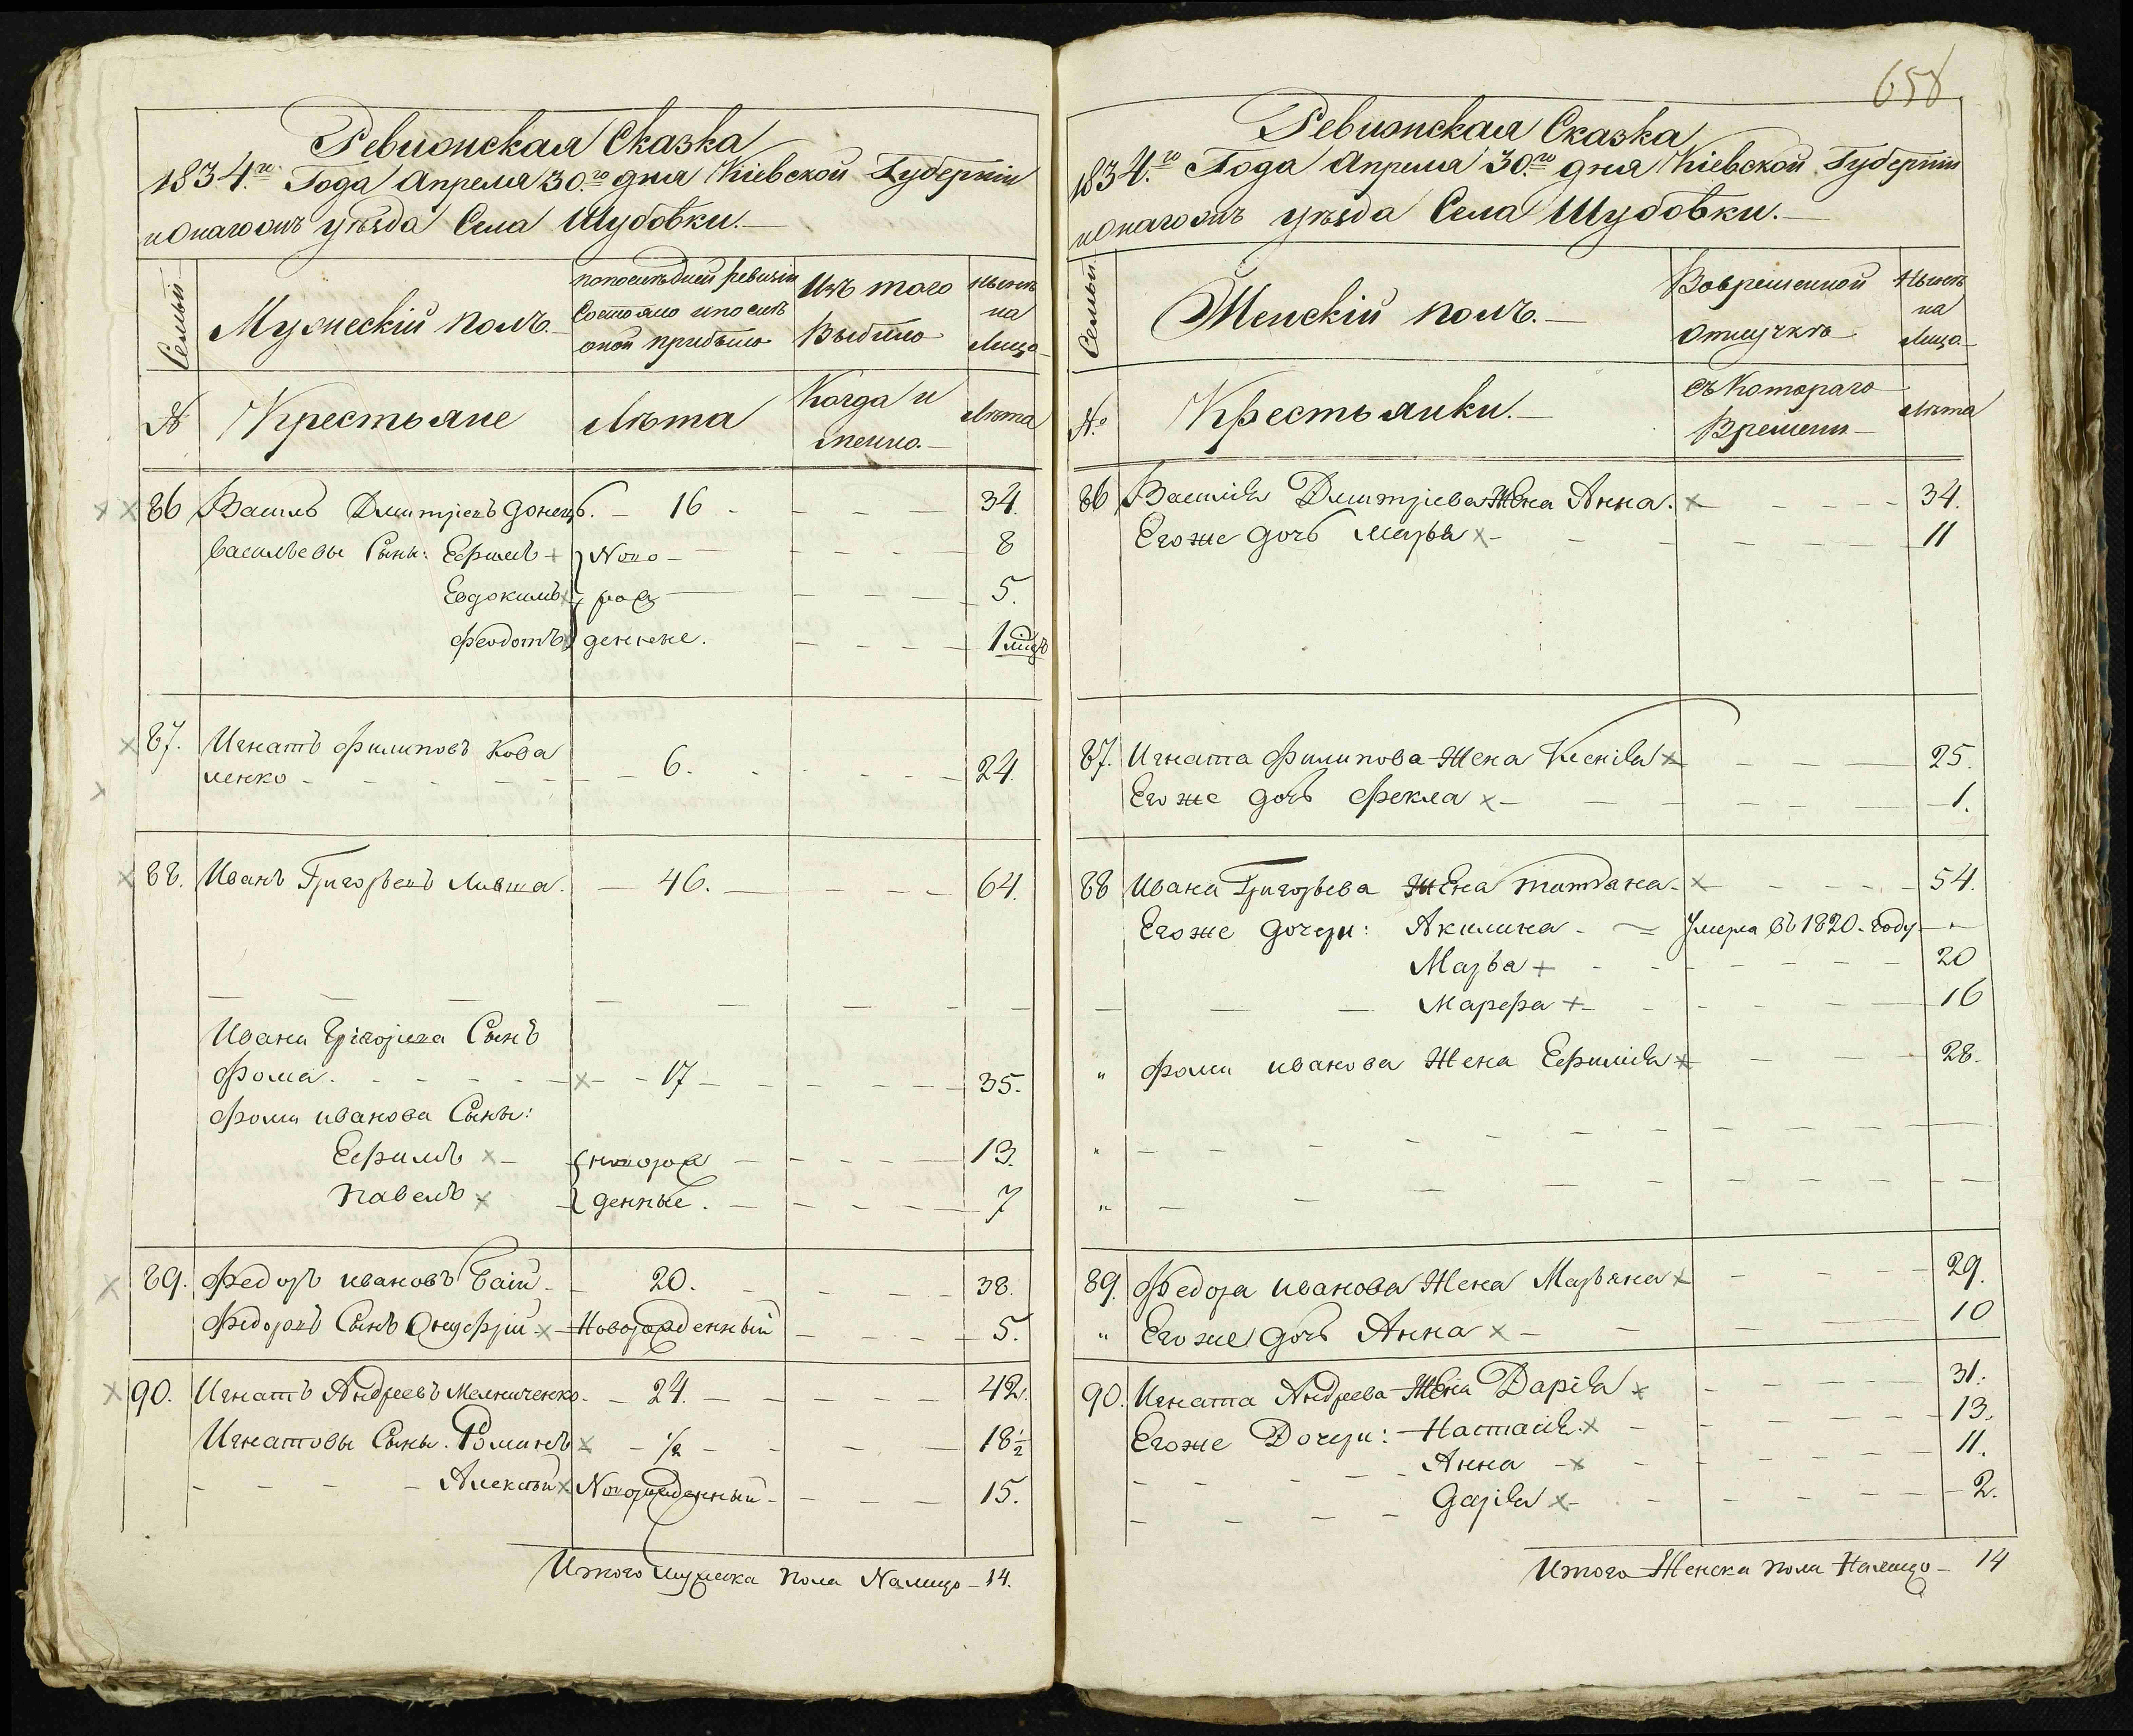 Ревизская Сказка
1834.го Года Апреля 30.го дня Кіевской Губерніи
иОнагожъ уѣзда Села Шубовки.
Семьи
Мужескій полъ.
попослѣдней ревизіи
Состояло ипослѣ
оной прибыло
Изъ того
Выбыло
нынѣ
на
Лицо
№
Крестьяне
Лѣта
Когда и
имянно.
Лѣта
86 Василь Дмитріевъ Донецъ. 16 34.
Васильевы Сины: Ефимъ Ново 8
Евдокимъ рож 5.
Феодотъ деннне. 1 мѣсъ
87. Игнатъ Филиповъ Кова
ленко 6. 24.
88. Иванъ Григорьевъ Лівша. 46. 64.
Ивана Григорьева Сынъ
Фома. 17 35.
Фоми иванова Сыны:
Ефимъ новорож 13.
Павелъ денные. 7
89. Федоръ ивановъ Гай 20. 38.
Федоровъ Сынъ Онуфрій Новорожденный 5.
90. Игнатъ Андреевъ Мелниченко. 24. 42.
Игнатовы Сыны. Романъ 1/2 18 1/2
Алексѣй Новорожденный 15.
Итого мужеска пола Налицо 14.
658
Ревизская Сказка
1834.го Года Апреля 30.го дня Кіевской Губерніи
иОнагожъ уѣзда Села Шубовки.
Семьи
Женскій полъ.
Вовременной
отлучкѣ
Нынѣ
на
Лицо
№
Крестьянки.
съ Котораго
Времени
Лѣта
86 Василія Дмитріева Жена Анна. 34.
Егоже дочь Марья 11
87. Игната Филипова Жена Ксенія 25.
Егоже дочь Фекла 1.
88 Ивана Григорьева Жена татіана 54.
Егоже дочери: Акилина Умерла въ 1820. году
Марья 20
Марфа 16
" Фоми иванова Жена Ефимія 28.
"
"
89. Федора иванова Жена Марьяна 29.
" Егоже дочь Анна 10
90. Игната Андреева Жена Дарія 31.
Егоже Дочери: Настасія. 13.
Анна 11.
Дарія 2.
Итого Женска пола Налицо 14